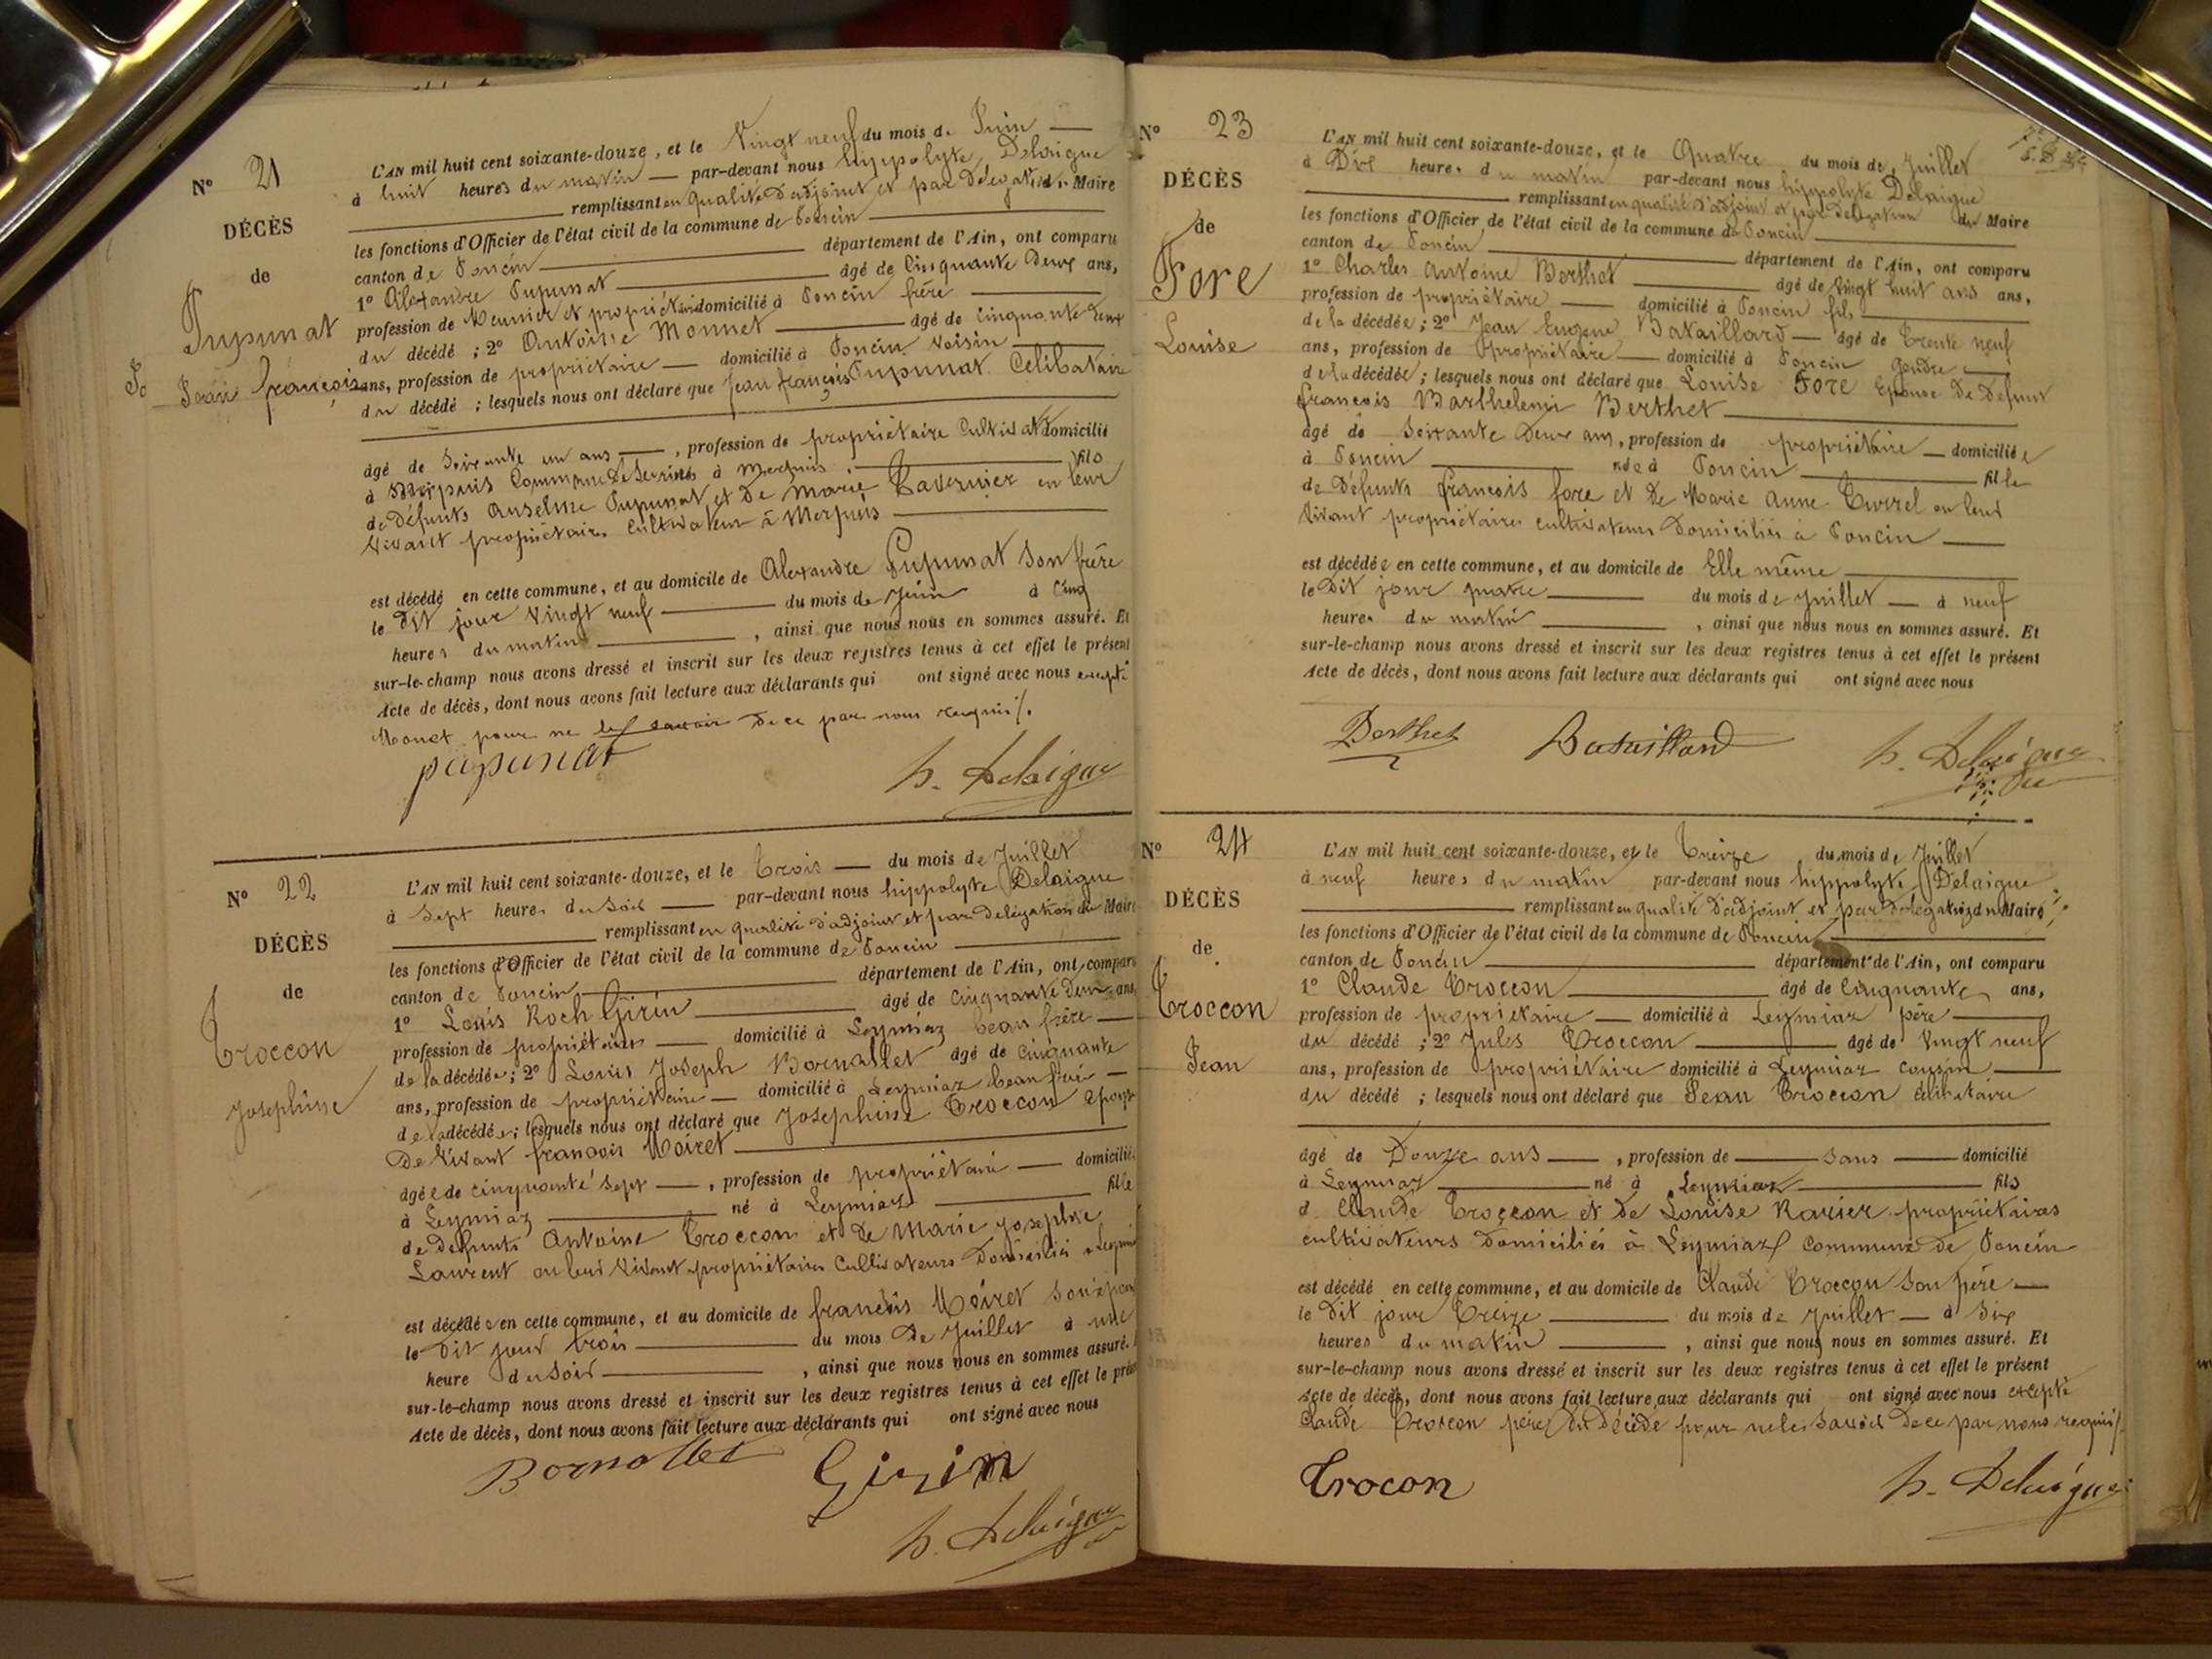 N° 21
DÉCÈS
de
Pupunat
Jean françois
L'AN mil huit cent soixante-douze, et le Vingt neuf du mois de Juin
à huit heures du matin par-devant nous hippolyte Delaigue
remplissant en qualité d'adjoint et par délégation du Maire
les fonctions d'Officier de l'état civil de la commune de Poncin
canton de Poncin département de l'Ain, ont comparu
1° Alexandre Pupunat âgé de Cinquante Deux ans,
profession de Meunier et propriétaire domicilié à Poncin frère
du décédé ; 2° Antoine Monnet âgé de cinquante Deux
ans, profession de propriétaire domicilié à Poncin Voisin
du décédé ; lesquels nous ont déclaré que Jean françois Pupunat Célibataire
âgé de Soixante un ans, profession de propriétaire Cultivateur domicilié
à Merpuis Commune de Serrières à Merpuis fils
de défunts Anselme Pupunat et de Marie Tavernier en leur
Vivant propriétaires Cultivateurs à Merpuis
est décédé en cette commune, et au domicile de Alexandre Pupunat Son frère
le Dit jour Vingt neuf du mois de Juin à Cinq
heures du matin, ainsi que nous nous en sommes assuré. Et
sur-le-champ nous avons dressé et inscrit sur les deux registres tenus à cet effet le présent
Acte de décès, dont nous avons fait lecture aux déclarants qui ont signé avec nous excepté
Monet pour ne le savoir de ce par nous requis /.
pupunat
h. Delaigue
N° 22
DÉCÈS
de
Troccon
Josephine
L'AN mil huit cent soixante-douze, et le Trois du mois de Juillet
à Sept heures du Soir par-devant nous hippolyte Delaigue
remplissant en qualité d'adjoint et par délégation du Maire
les fonctions d'Officier de l'état civil de la commune de Poncin
canton de Poncin département de l'Ain, ont comparu
1° Louis Roch Girin âgé de Cinquante Deux ans,
profession de propriétaire domicilié à Leymiaz beau frère
de la décédée ; 2° Louis Joseph Bornallet âgé de Cinquante
ans, profession de propriétaire domicilié à Leymiaz beau frère
de la décédée ; lesquels nous ont déclaré que Josephine Troccon épouse
De Vivant françois Moiret
âgée de cinquante Sept, profession de propriétaire domiciliée
à Leymiaz né à Leymiaz fille
de défunts Antoine Troccon et de Marie Josephte
Laurent en leur Vivant propriétaires Cultivateurs Domiciliés
est décédée en cette commune, et au domicile de françois Moiret Son époux
le Dit jour trois du mois de Juillet à une
heure du Soir, ainsi que nous nous en sommes assuré.
sur-le-champ nous avons dressé et inscrit sur les deux registres tenus à cet effet le présent
Acte de décès, dont nous avons fait lecture aux déclarants qui ont signé avec nous
Bornallet
Girin
h. Delaigue
N° 23
DÉCÈS
de
Fore
Louise
L'AN mil huit cent soixante-douze, et le Quatre du mois de Juillet
à Dix heures du matin par-devant nous hippolyte Delaigue
remplissant en qualité d'adjoint et par délégation du Maire
les fonctions d'Officier de l'état civil de la commune de Poncin
canton de Poncin département de l'Ain, ont comparu
1° Charles Antoine Berthet âgé de Vingt huit ans ans,
profession de propriétaire domicilié à Poncin fils
de la décédée ; 2° Jean Eugene Bataillard âgé de Trente neuf
ans, profession de propriétaire domicilié à Poncin Gendre
de la décédée ; lesquels nous ont déclaré que Louise Fore Epouse De Defunt
françois Barthelemi Berthet
âgé de Soixante Deux ans, profession de propriétaire domiciliée
à Poncin née à Poncin fille
de Défunts françois fore et de Marie Anne Curvel en leur
Vivant propriétaires cultivateurs Domiciliés à Poncin
est décédée en cette commune, et au domicile de Elle même
le Dit jour quatre du mois de Juillet à neuf
heures du matin, ainsi que nous nous en sommes assuré. Et
sur-le-champ nous avons dressé et inscrit sur les deux registres tenus à cet effet le présent
Acte de décès, dont nous avons fait lecture aux déclarants qui ont signé avec nous
Berthet
Bataillard
h. Delaigue
N° 24
DÉCÈS
de
Troccon
Jean
L'AN mil huit cent soixante-douze, et le Treize du mois de Juillet
à neuf heures du matin par-devant nous hippolyte Delaigue
remplissant en qualité d'adjoint et par délégation du Maire
les fonctions d'Officier de l'état civil de la commune de Poncin
canton de Poncin département de l'Ain, ont comparu
1° Claude Troccon âgé de Cinquante ans,
profession de propriétaire domicilié à Leymiaz père
du décédé ; 2° Jules Troccon âgé de Vingt neuf
ans, profession de propriétaire domicilié à Leymiaz cousin
du décédé ; lesquels nous ont déclaré que Jean Troccon célibataire
âgé de Douze ans, profession de sans domicilié
à Leymiaz né à Leymiaz fils
d Claude Troccon et de Louise Ravier propriétaires
cultivateurs Domiciliés à Leymiaz Commune de Poncin
est décédé en cette commune, et au domicile de Claude Troccon Son père
le Dit jour Treize du mois de Juillet à Six
heures du matin, ainsi que nous nous en sommes assuré. Et
sur-le-champ nous avons dressé et inscrit sur les deux registres tenus à cet effet le présent
Acte de décès, dont nous avons fait lecture aux déclarants qui ont signé avec nous excepté
Claude Troccon père du décédé pour ne les savoir de ce par nous requis /.
Trocon
h. Delaigue